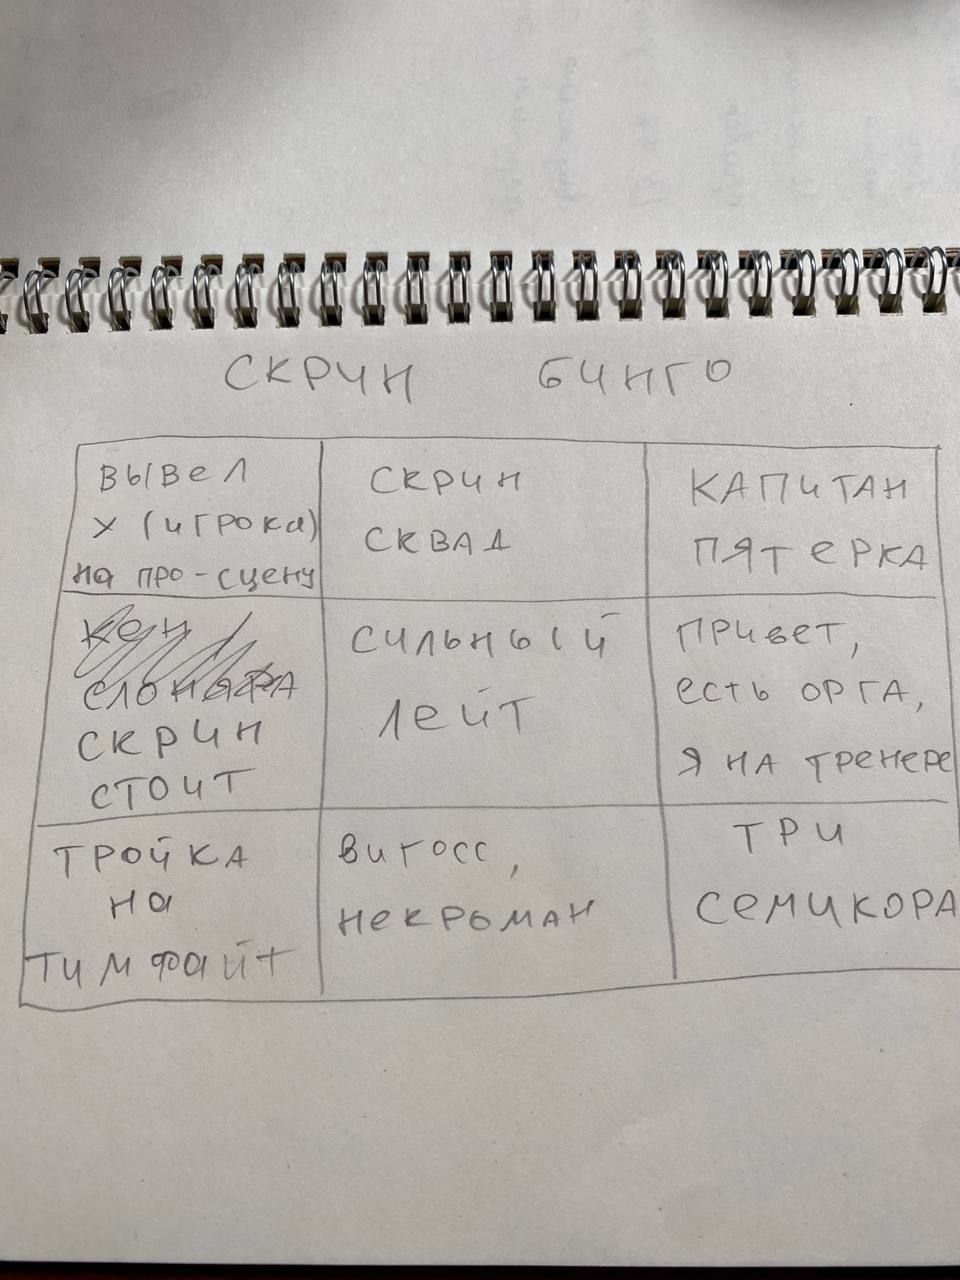 СКРИН БИНГО
ВЫВЕЛ
Х (ИГРОКА)
НА ПРО-СЦЕНУ
СКРИН
СКВАД
КАПИТАН
ПЯТЕРКА
СКРИН
СТОИТ
СИЛЬНЫЙ
ЛЕЙТ
ПРИВЕТ,
ЕСТЬ ОРГА,
Я НА ТРЕНЕРЕ
ТРОЙКА
НА
ТИМФАЙТ
ВИГОСС,
НЕКРОМАН
ТРИ
СЕМИКОРА